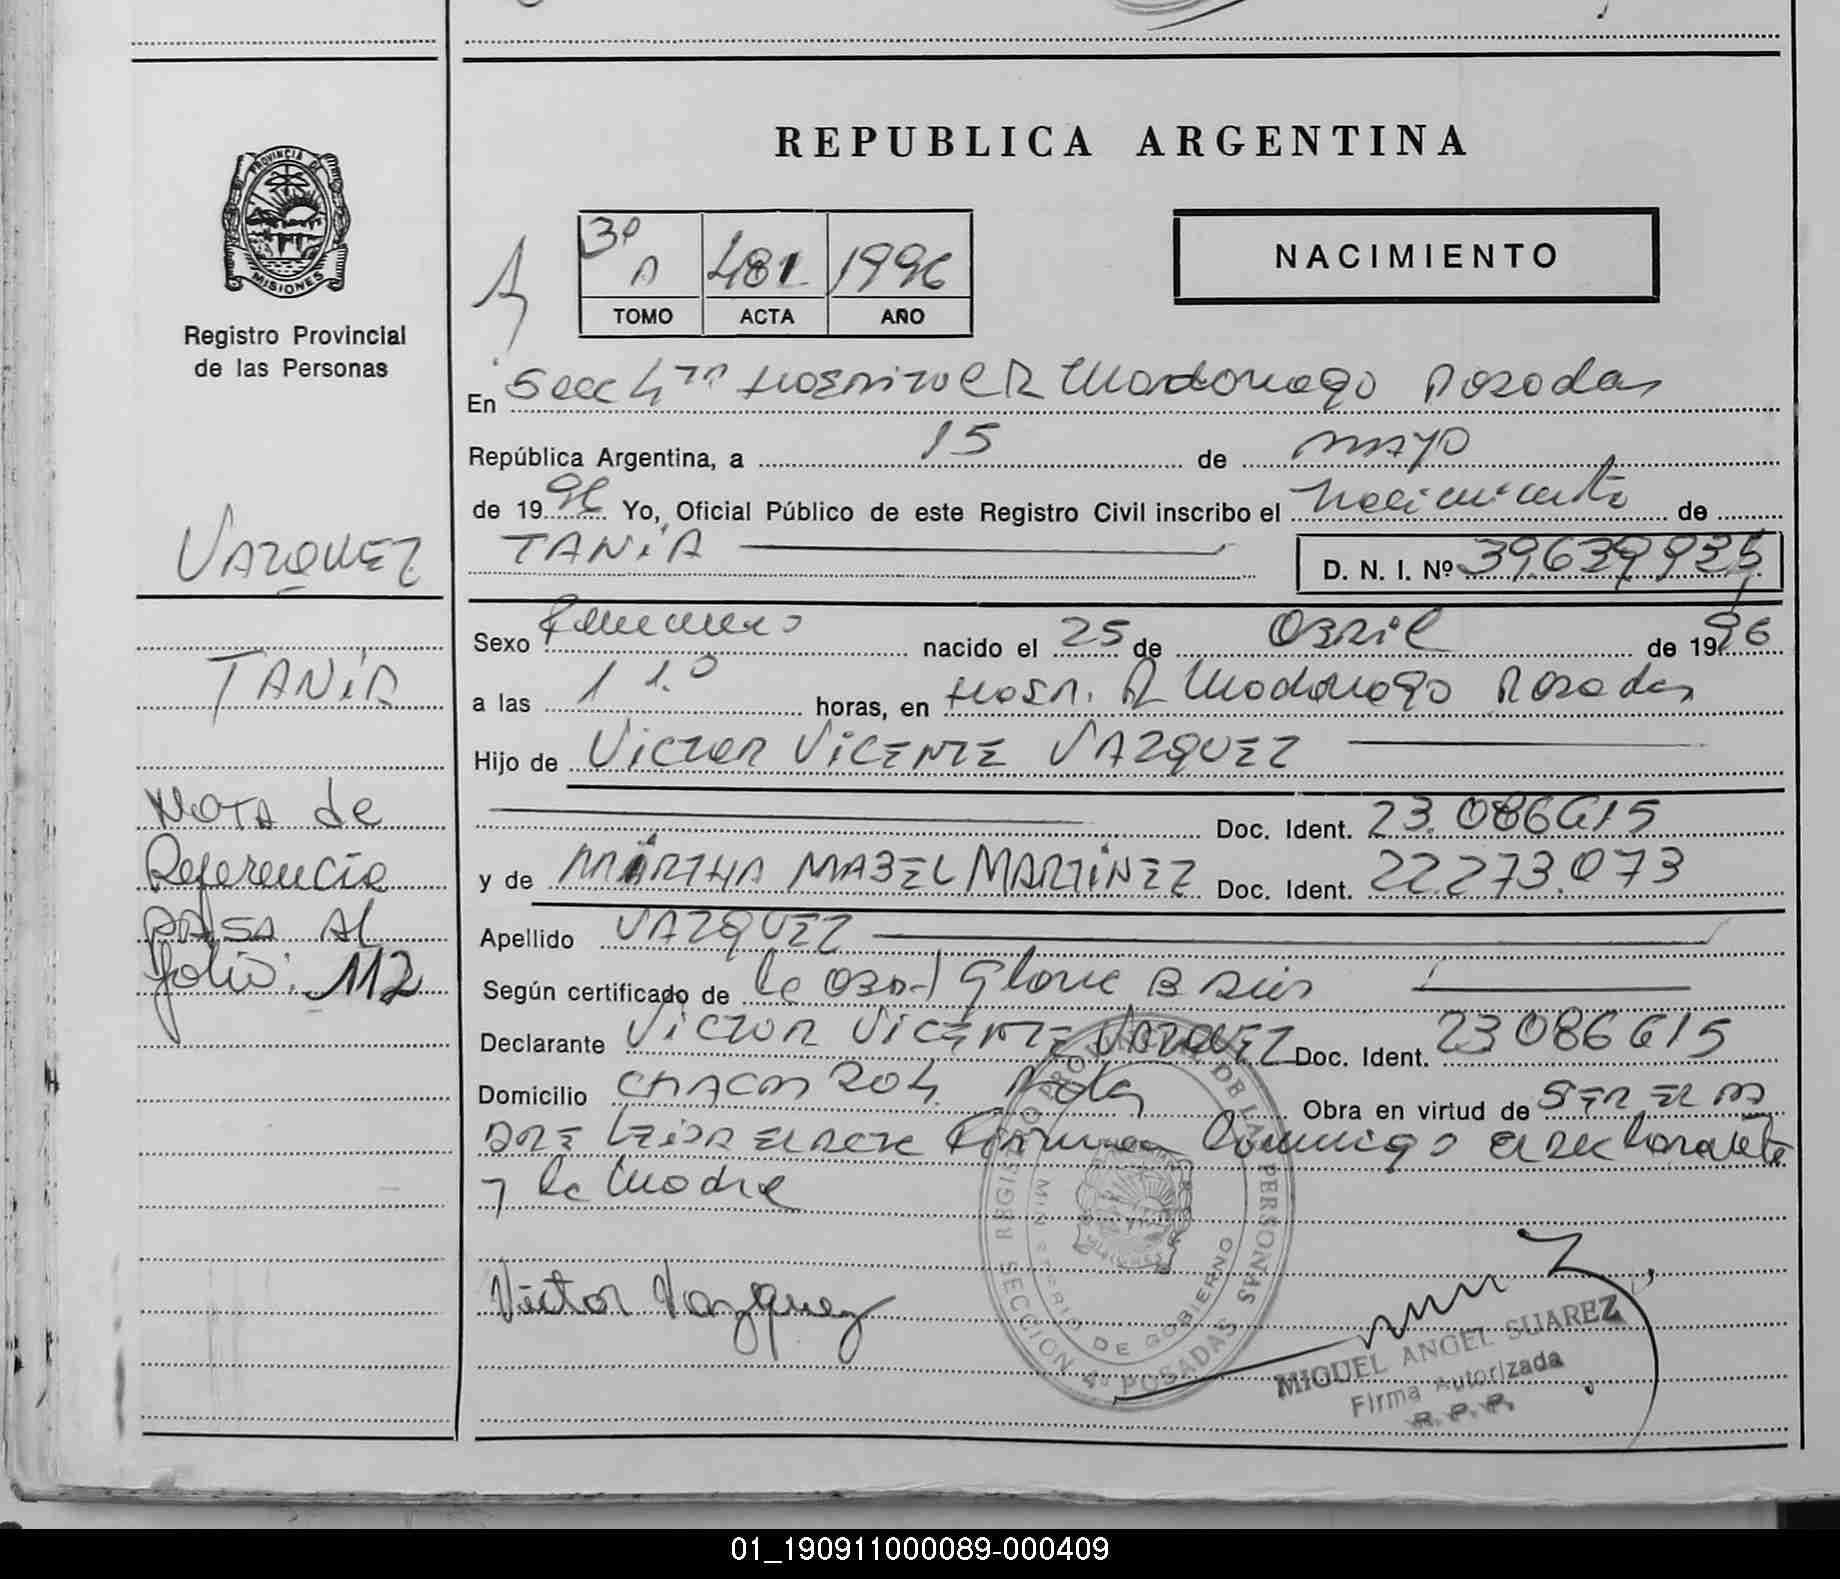 REPUBLICA ARGENTINA
PROVINCIA DE
MISIONES
Registro Provincial
de las Personas
3º
A 481 1996
TOMO ACTA AÑO
NACIMIENTO
En Secc 4ta Hospital R Madariaga Posadas
República Argentina, a 15 de mayo
de 1996 Yo, Oficial Público de este Registro Civil inscribo el nacimiento de
TANIA D. N. I. Nº 39.639.935
Sexo femenino nacido el 25 de Abril de 1996
a las horas, en Hosp. R Madariaga Posadas
Hijo de VICTOR VICENTE VAZQUEZ
Doc. Ident. 23.086615
y de MARTHA MABEL MARTINEZ Doc. Ident. 22.273.073
Apellido VAZQUEZ
Según certificado de la Obst
Declarante VICTOR VICENTE VAZQUEZ Doc. Ident. 23086615
Domicilio CHACO 204 Pdas Obra en virtud de SER EL PA
DRE LEIDA EL ACTA Firman Conmigo el declarante
y la Madre
Victor Vazquez
REGISTRO PROVINCIAL DE LAS PERSONAS
MINISTERIO DE GOBIERNO
MISIONES
SECCION 4º POSADAS
MIGUEL ANGEL SUAREZ
Firma Autorizada
R. P. P.
VAZQUEZ
TANIA
NOTA de
Referencia
PASA AL
folio: 112
01_190911000089-000409